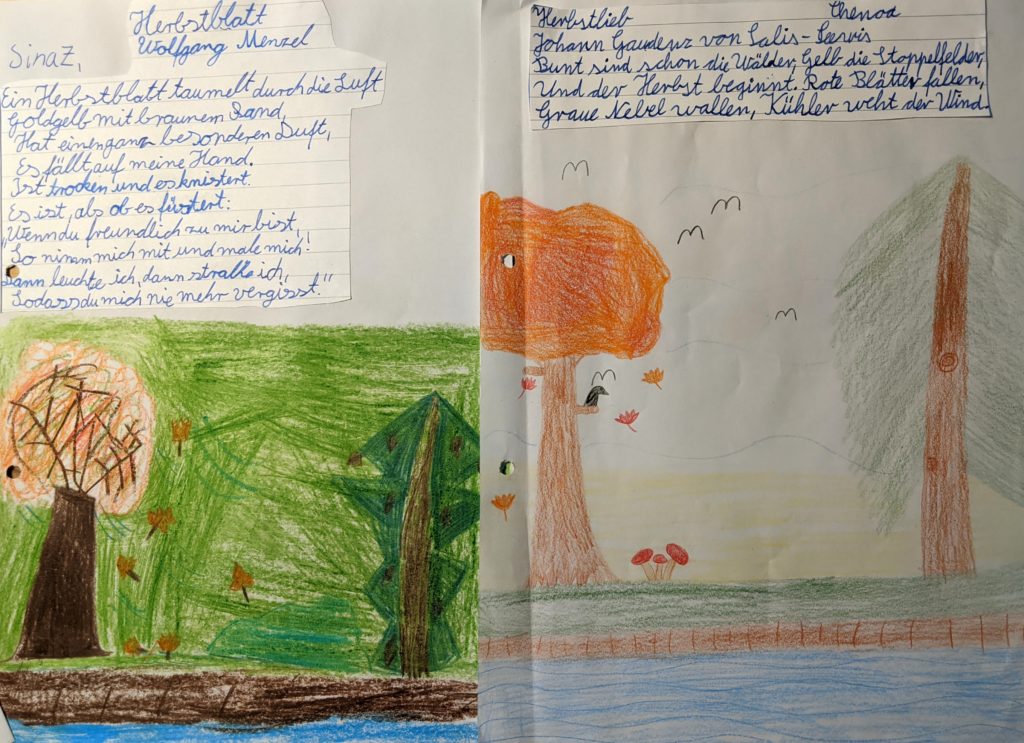 Sinaz,
Herbstblatt
Wolfgang Menzel
Ein Herbstblatt taumelt durch die Luft
Goldgelb mit braunem Rand,
Hat einen ganz besonderen Duft,
Es fällt auf meine Hand.
Ist trocken und es knistert.
Es ist, als ob es füstert:
„Wenn du freundlich zu mir bist,
So nimm mich mit und male mich!
Dann leuchte ich, dann stralle ich,
Sodass du mich nie mehr vergisst."
Herbstlieb Chenoa
Johann Gaudenz von Salis-Seevis
Bunt sind schon die Wälder, Gelb die Stoppelfelder,
Und der Herbst beginnt. Rote Blätter fallen,
Graue Nebel wallen, Kühler weht der Wind.